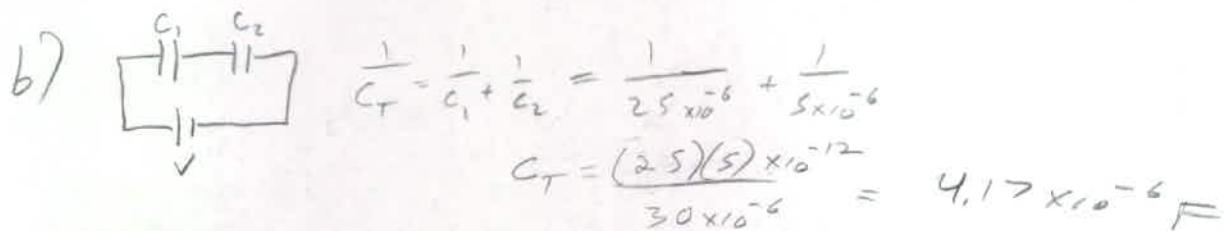 b) C₁ C₂
V
1/C_T = 1/C₁ + 1/C₂ = 1/25×10⁻⁶ + 1/5×10⁻⁶
C_T = (25)(5)×10⁻¹²/30×10⁻⁶ = 4.17×10⁻⁶ F